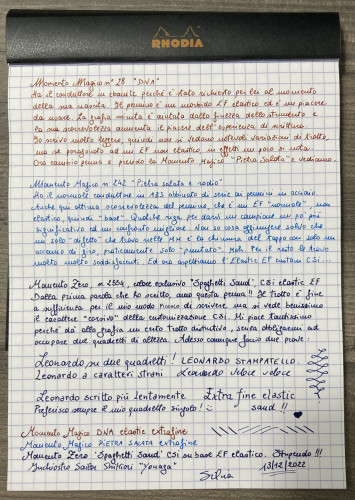 RHODIA
Momento Magico n° 28 "DNA"
Ha il conduttore in ebanite perché è stato richiesto per lei al momento
della sua nascita. Il pennino è un morbido EF elastico ed è un piacere
da usare. La grafia minuta è aiutata dalla finezza dello strumento e
la sua scorrevolezza aumenta il piacere dell'esperienza di scrittura.
Io scrivo molto leggera quindi non si vedono notevoli variazioni di tratto,
ma se paragonato ad un EF non elastico, in effetti un poco si nota.
Ora cambio penna e prendo la Momento Magico "Pietra Salata" e vediamo.
Momento Magico n° 242 "Pietra salata e rodio"
Ha il normale conduttore in ABS abbinato di serie ai pennini in acciaio.
Anche qui ottima scorrevolezza del pennino, che è un EF "normale", non
elastico, quindi "base". Qualche riga per darvi un campione un po' più
significativo ed un confronto migliore. Non so cosa aggiungere salvo che
un solo "difetto" che trovo nelle MM è la chiusura del tappo con solo un
accenno di giro, praticamente solo "puntato". Mah. Per il resto le trovo
molto molto soddisfacenti. Ed ora aspettiamo l'Elastic EF custom CSi...
Momento Zero, n. 2554, colore esclusivo "Spaghetti Saud", CSi elastic EF
Dalla prima parola che ho scritto, amo questa penna!! Il tratto è fine
a sufficienza per il mio modo nono di scrivere, ma si vede benissimo
il carattere "corsivo" della customizzazione CSi. Mi piace tantissimo
perché dà alla grafia un certo tratto distintivo, senza obbligarmi ad
occupare due quadretti di altezza. Adesso comunque faccio due prove:
Leonardo su due quadretti! LEONARDO STAMPATELLO.
Leonardo a caratteri strani Leonardo veloce veloce
Leonardo scritto più lentamente Extra fine elastic
Preferisco sempre il mio quadretto singolo! :) saud !!
Momento Magico DNA elastic extrafine
Momento Magico PIETRA SALATA extrafine
Momento Zero "Spaghetti Saud" CSi su base EF elastico. Stupendo!!!
Inchiostro Sailor Shikiori "Yonaga" 13/12/2022
Silvia